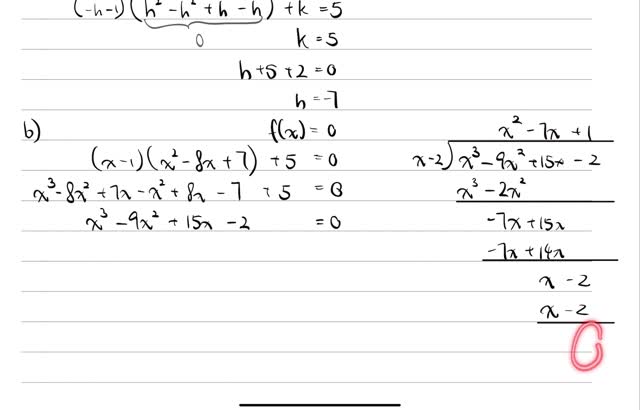 (-h-1)(h² - h² + h - h) + k = 5
0 k = 5
h + 5 + 2 = 0
h = -7
b) f(x) = 0
(x-1)(x² - 8x + 7) + 5 = 0
x³ - 8x² + 7x - x² + 8x - 7 + 5 = 0
x³ - 9x² + 15x - 2 = 0
x² - 7x + 1
x-2) x³ - 9x² + 15x - 2
x³ - 2x²
-7x + 15x
-7x + 14x
x - 2
x - 2
0